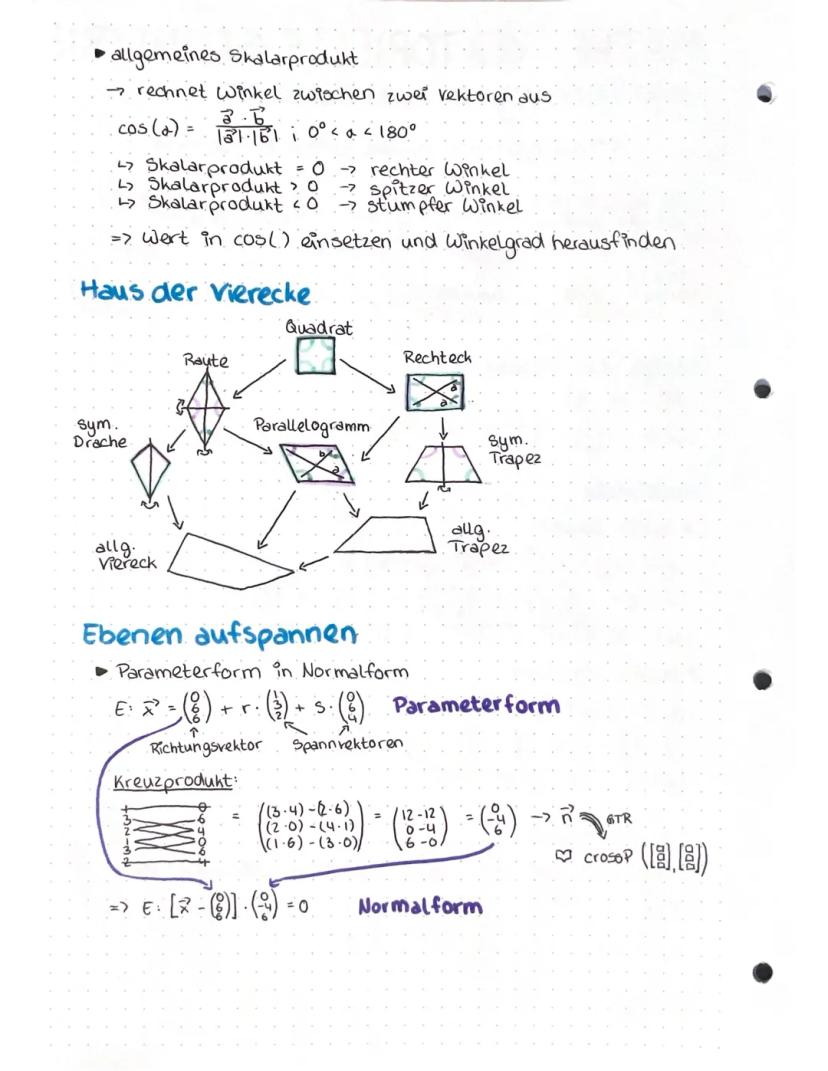 ▸ allgemeines Skalarprodukt
→ rechnet Winkel zwischen zwei Vektoren aus
cos(a) = a⃗ · b⃗ / |a⃗| · |b⃗| ; 0° < α < 180°
↳ Skalarprodukt = 0 → rechter Winkel
↳ Skalarprodukt > 0 → spitzer Winkel
↳ Skalarprodukt < 0 → stumpfer Winkel
=> Wert in cos() einsetzen und Winkelgrad herausfinden
Haus der Vierecke
Quadrat
Raute
Rechteck
a
a
sym. Drache
Parallelogramm
b
a
sym. Trapez
allg. Viereck
allg. Trapez
Ebenen aufspannen
▸ Parameterform in Normalform
E: x⃗ = (0 6 6) + r · (1 3 2) + s · (0 6 4) Parameterform
↑ Richtungsvektor Spannvektoren
Kreuzprodukt:
1 0
3 6
2 4
1 0
3 6
2 4
= ((3·4)-(2·6) (2·0)-(4·1) (1·6)-(3·0)) = (12-12 0-4 6-0) = (0 -4 6) → n⃗ GTR
♡ crossP ([8 8 8],[8 8 8])
=> E: [x⃗ - (0 6 6)] · (0 -4 6) = 0 Normalform